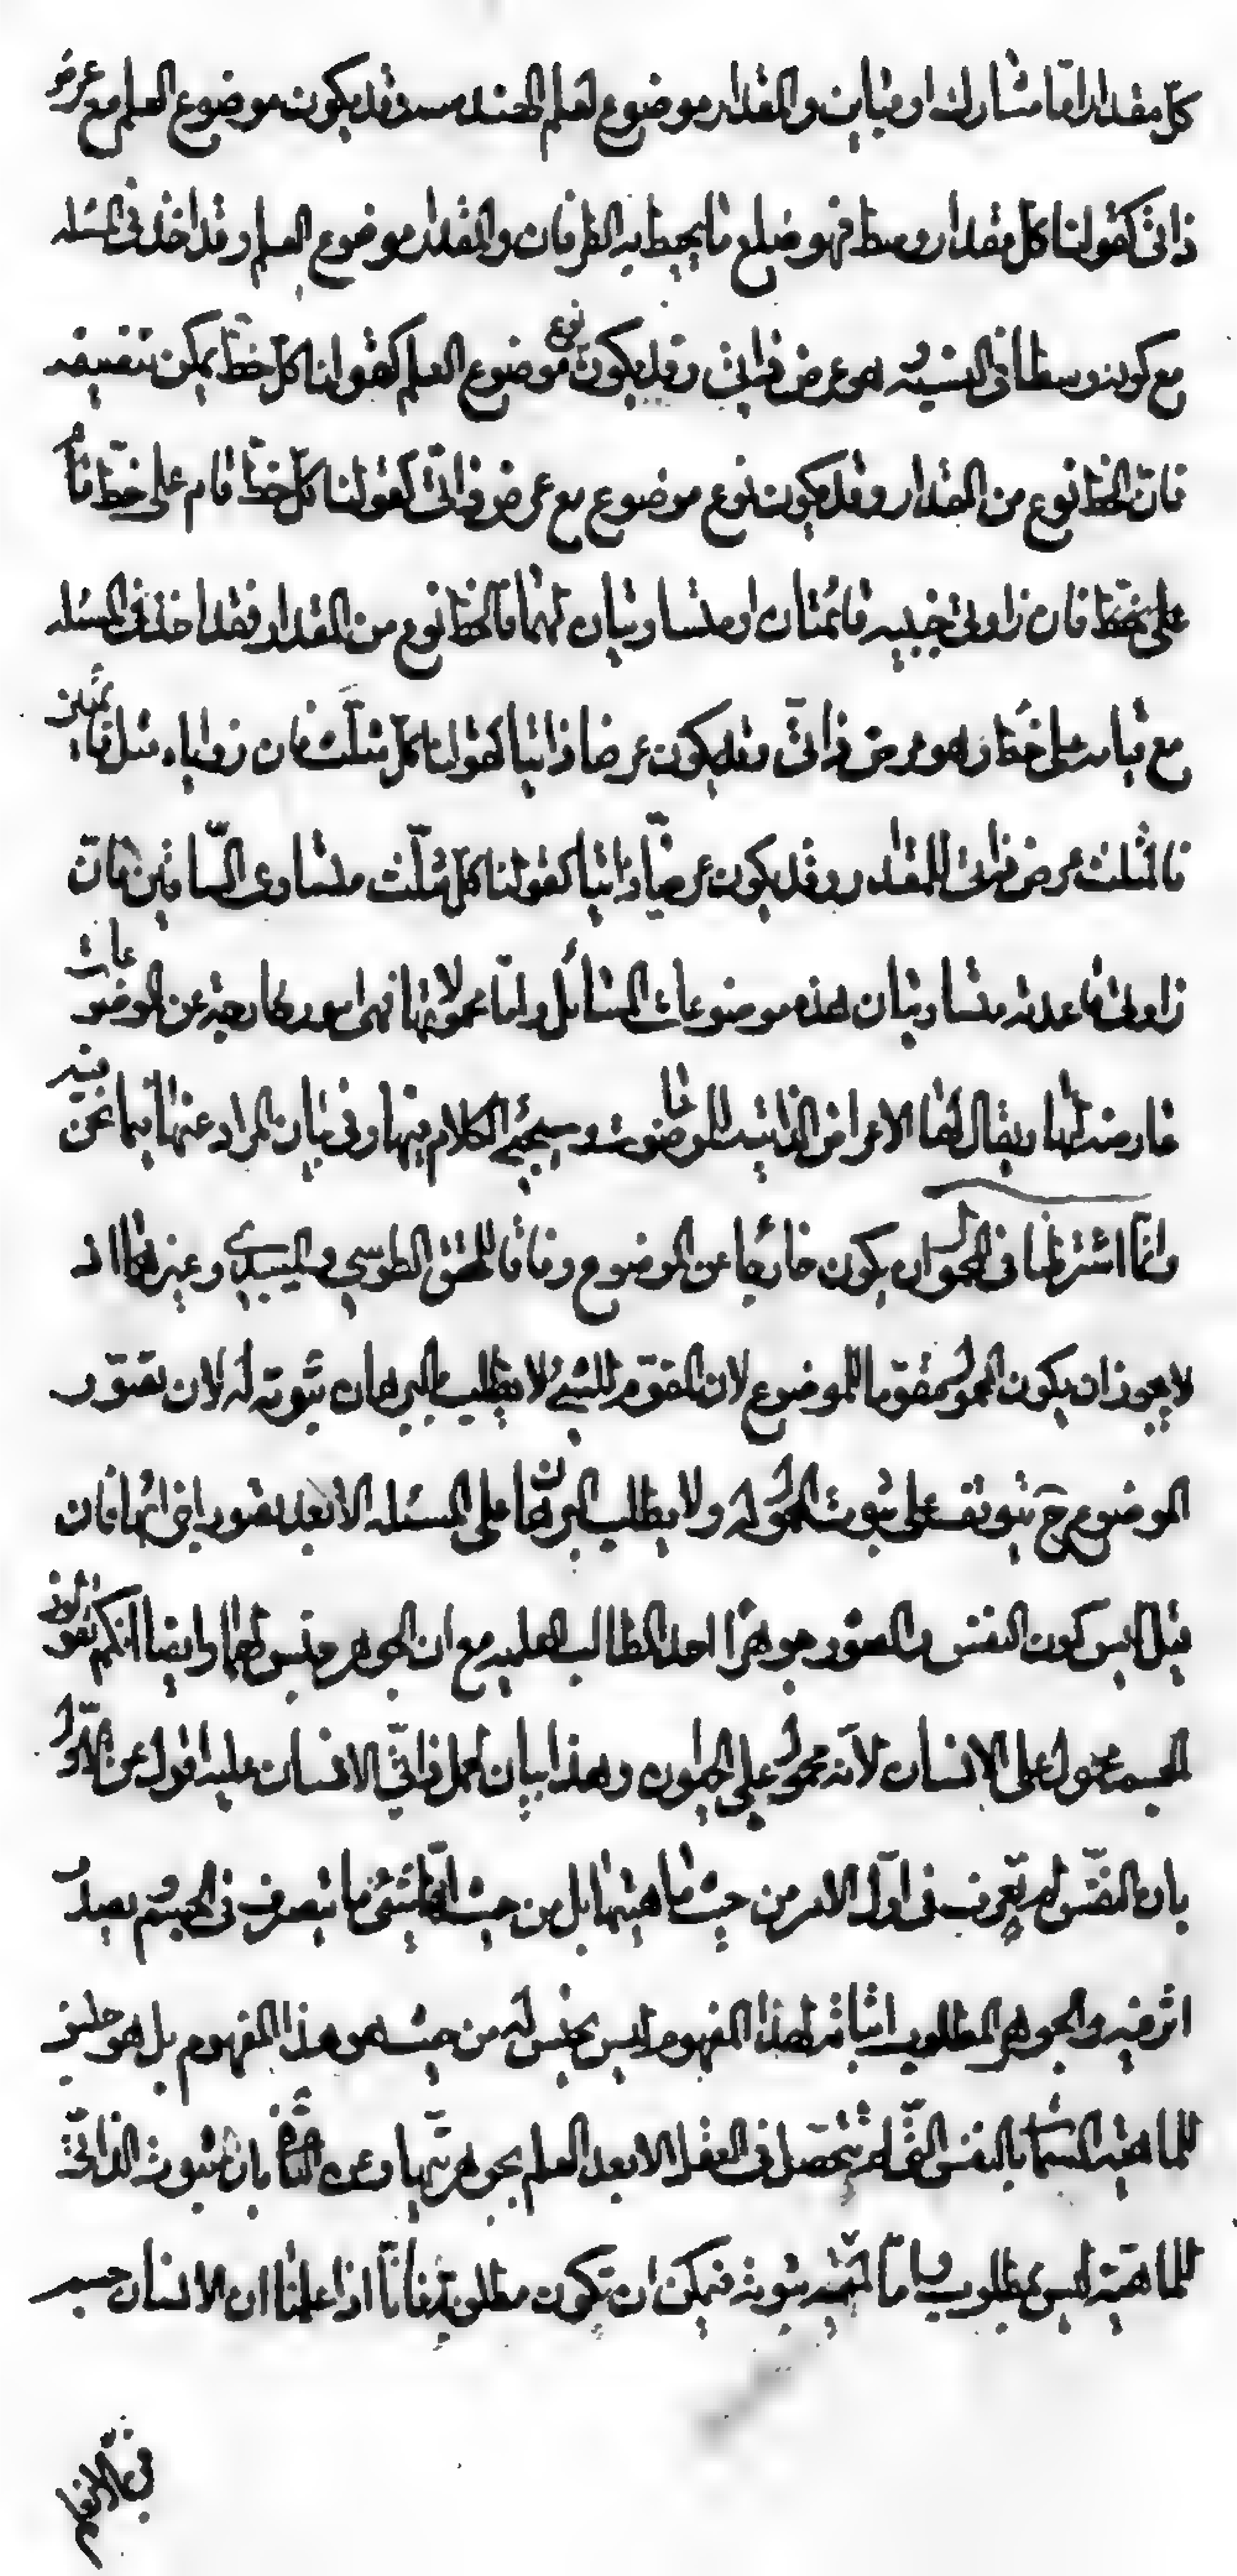 كلّ مقدار امّا مشارك او مباين والمقدار موضوع لعلم الهندسه وقد يكون موضوع العلم مع عرض
ذاتى كقولنا كل مقدار وسط فهو ضلع ما يحيط به الطرفان والمقدار موضوع العلم وقد اخذ فى المسئله
مع كونه وسطا فى النسبة وهو عرض ذاتى وقد يكون نوع موضوع العلم كقولنا كل خطّ يمكن تنصيفه
فانّ الخط نوع من المقدار وقد يكون نوع موضوع مع عرض ذاتىّ كقولنا كلّ خطّ قام على خطّ
على خط فان زاويتى جنبيه قائمتان او متساويتان لهما فالخط نوع من المقدار فقد اخذ فى المسئله
مع قيامه على خط وهو عرض ذاتىّ وقد يكون عرضا ذاتيا كقولنا كلّ مثلّث فان زواياه مثل قائمتين
فالمثلث عرض ذاتى للمقدار وقد يكون عرضيّا ذاتيا كقولنا كل مثلّث متساوى السّاقين فانّ
زاويتى قاعدته متساويتان هذه موضوعات المسائل وامّا محمولاتها فهى امور خارجة عن الموضوعات
عارضة لها ويقال لها الاعراض الذاتية للموضوعات وسيجئ الكلام فيها وفى بيان المراد عنها فيما نحن فيه
وانّما اشترطنا فى المحمول ان يكون خارجا عن الموضوع وفاقا للمحقق الطوسي والسيد وغيرهما اذ
لا يجوز ان يكون المحمول مقوّما للموضوع لان المقوّم للشئ لا يطلب بالبرهان ثبوته له لان تصوّر
الموضوع ح يتوقف على ثبوت المحمول له ولا يطلب البرهان على المسئله الا بعد تصوّر اجزائها فان
قيل اليس كون النفس والصّور جوهرًا احد المطالب العلميه مع ان الجوهر جنس لهما وايضا انكم تقولون
الجسم محمول على الانسان لانّه محمول على الحيوان وهذا بيان لحمل ذاتىّ الانسان عليه اقول عن الاوّل
بان النفس لم تعرف فى اوّل الامر من حيث ماهيتها بل من حيث انّها شئ ما يتصرف فى الجسم يصدر
اثر فيه والجوهر المطلوب اثباته لهذا المفهوم ليس بجنس له من حيث هو هذا المفهوم بل هو جنس
للماهيّة المسمّاة بالنفس الّتى لم تتحصّل فى العقل الا بعد العلم بجوهريّتها وعن الثّانى بان ثبوت الذاتىّ
للماهيّة ليس بمطلوب امّا لمّية ثبوته فيمكن ان تكون مطلوبة فانّا اذا علمنا ان الانسان جسم